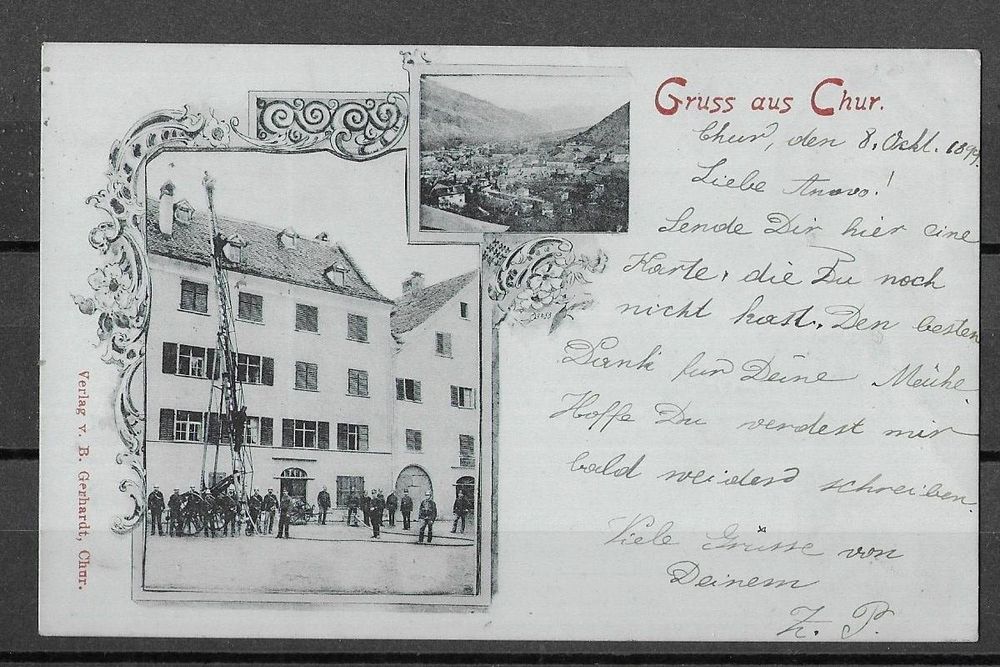 Gruss aus Chur.
Chur, den 8. Okt. 1899.
Liebe !
Sende Dir hier eine
Karte, die Du noch
nicht hast. Den besten
Dank fur Deine Mühe
Hoffe Du werdest mir
bald weider schreiben
Viele Grüsse von
Deinem
P.
Verlag v. B. Gerhardt, Chur.